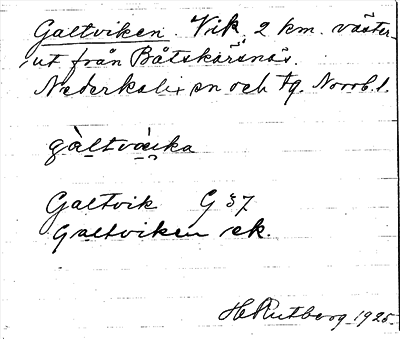 Galtviken. Vik 2 km. väster-
ut från Båtskärsnäs.
Nederkalix sn och tg. Norrb. l.
gàltvìka
Galtvik G 37
Galtviken ek.
H Rutberg 1925.